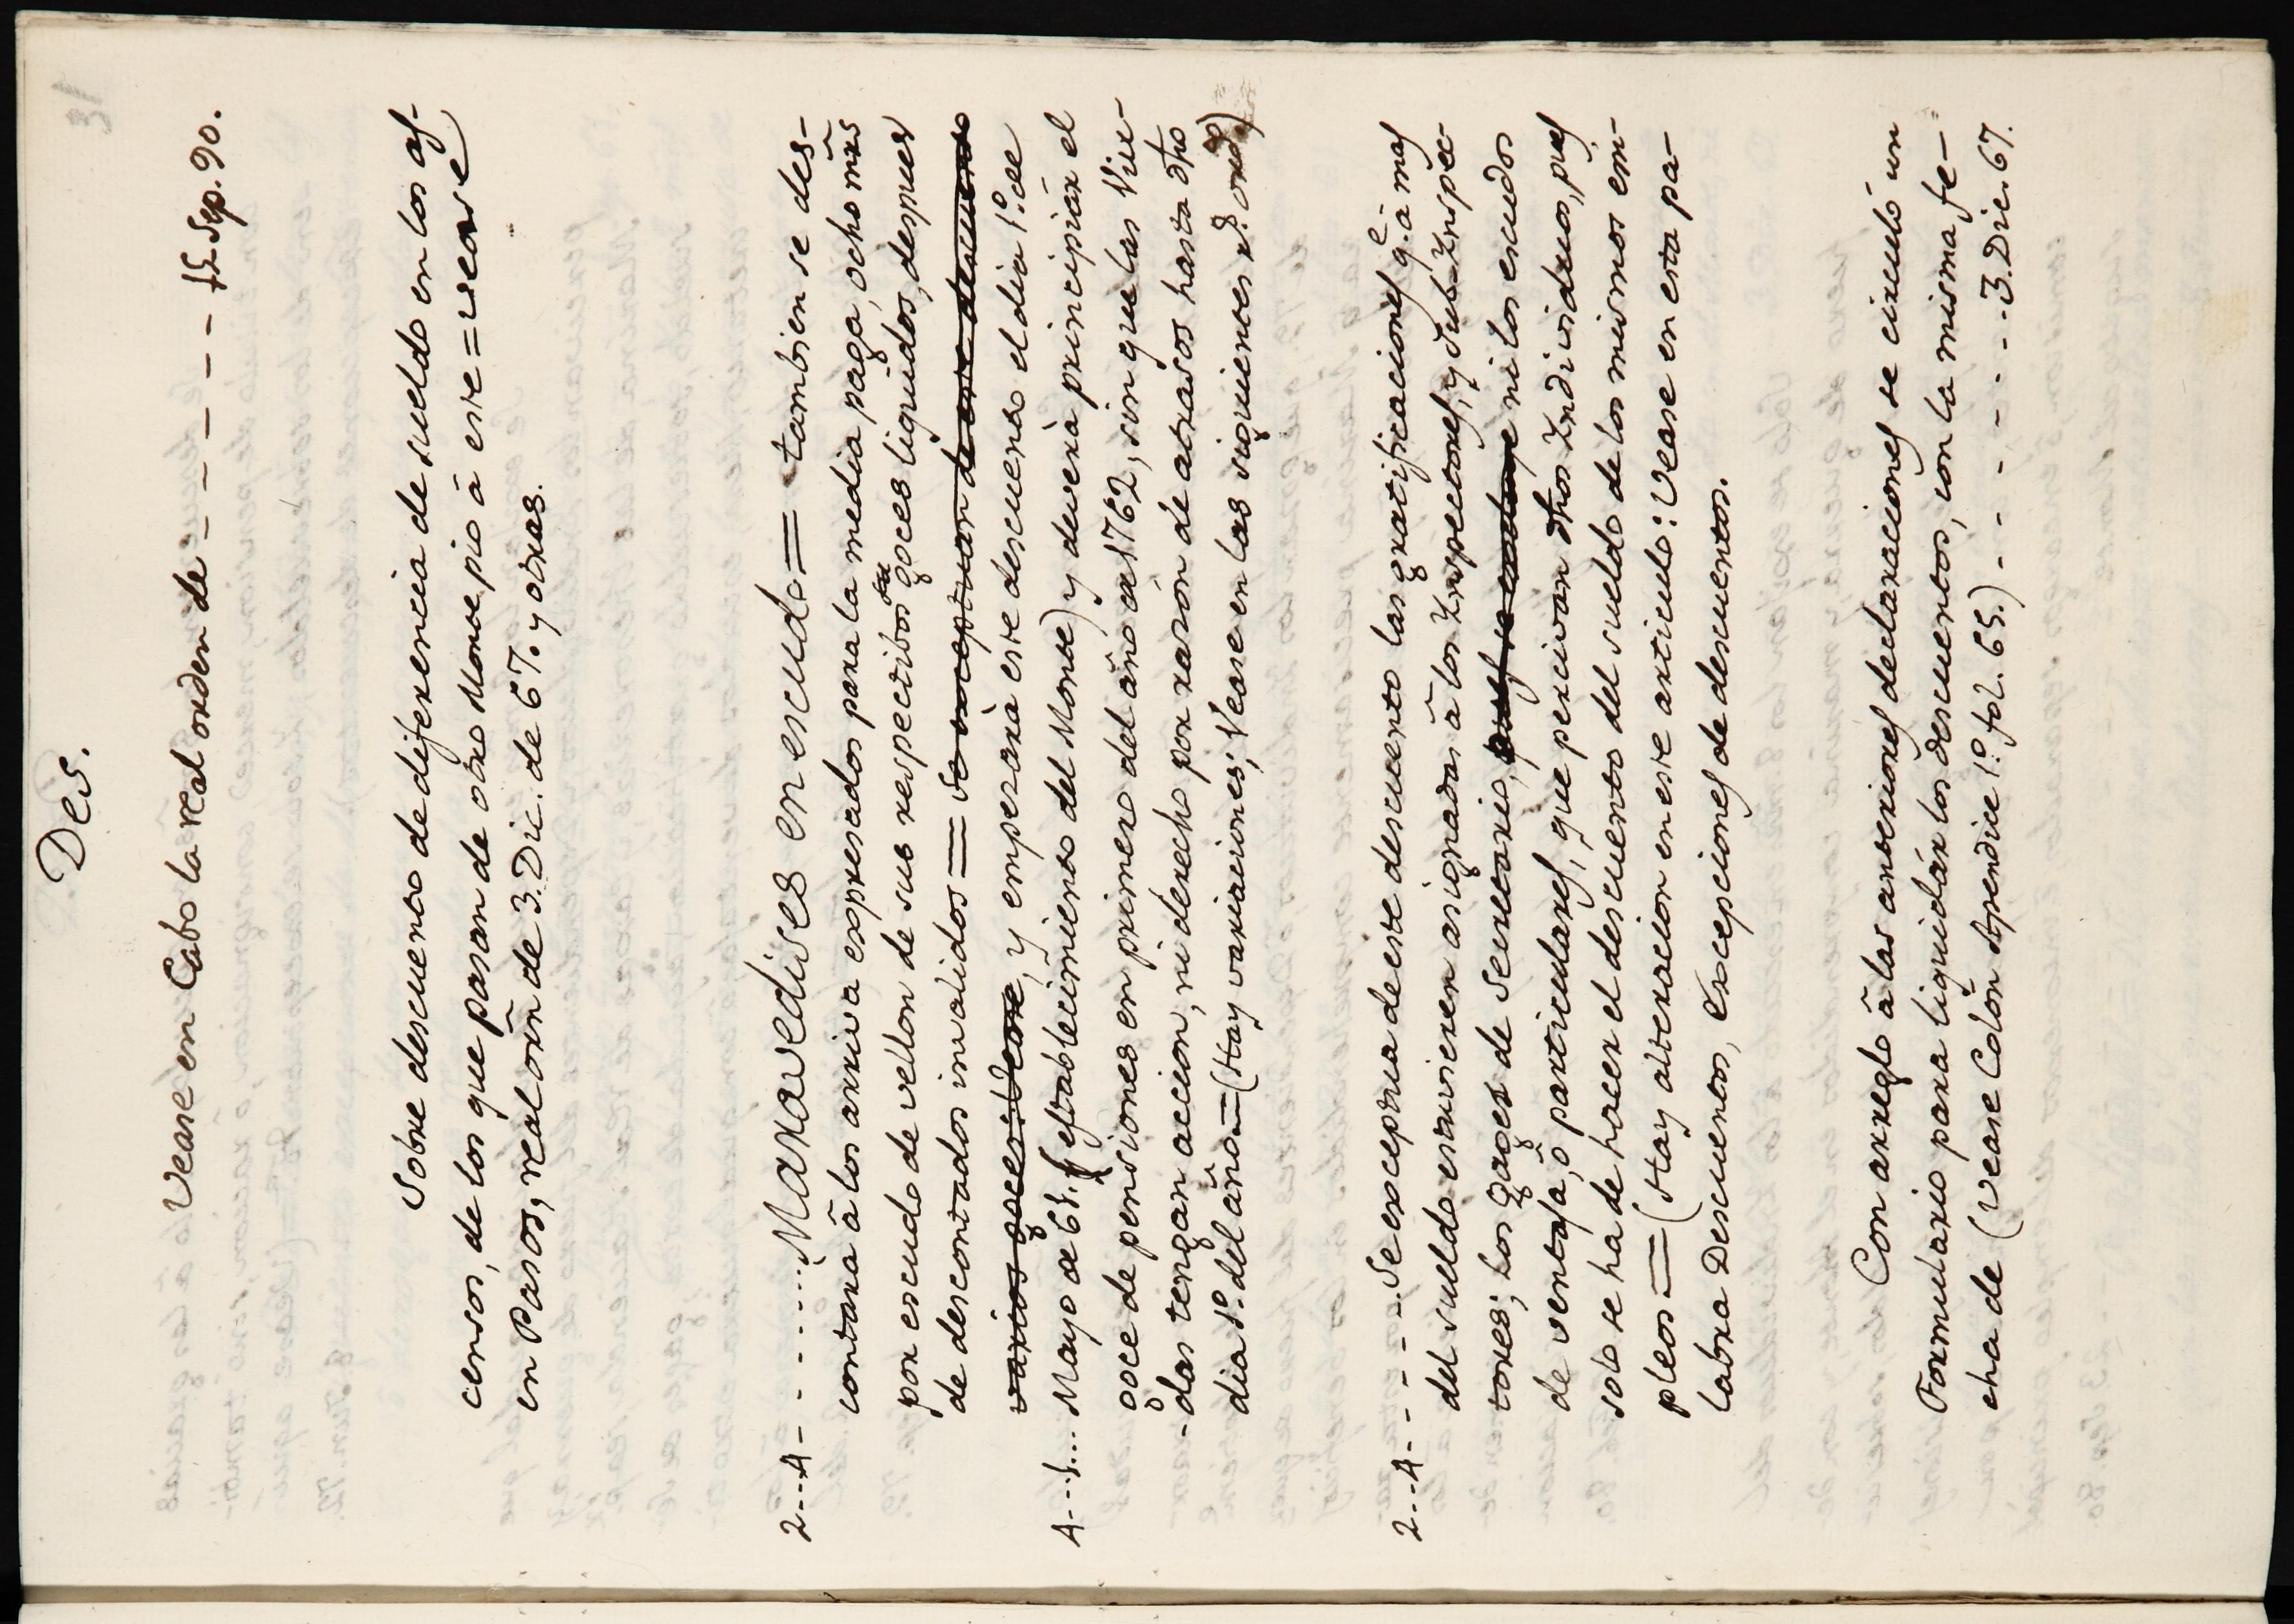 31
Des.
Vease en Cabo la real orden de - - - - - 15. Sep. 90.
Sobre descuento de diferencia de sueldo en los as-
censos, de los que pasan de otro Monte pio â este = vease
en Pasos, real orñ de 3. Dic. de 67. y otras.
2---A- - - - - - - Maravedises en escudo = tambien se des-
contara â los arriva expresados para la media paga, ocho mr̃s
por escudo de vellon de sus respectibos goces liquidos, despues
de descontados imbalidos = Se exceptuan de este descuento
varios goces: Vease, y empezara este descuento el dia 1º. de
A---1... Mayo de 61. (establecimiento del Monte) y deverà principiar el
goce de pensiones en primero del año de 1762, sin que las Viu-
-das tengan accion, ni derecho por razon de atrasos hasta dho
dia 1º. del año = (Hay variaciones; Vease en las siguientes rs. ords)
2---A- - - - - Se exceptua de este descuento las gratificaciones q.e â mas
del sueldo estuvieren asignadas â los Inspectores, y Sub-Inspec-
tores; los gages de Secretario, ni los escudos
de ventaja, ô particulares, que percivan dhos Individuos, pues
solo se ha de hacer el descuento del sueldo de los mismos em-
pleos = (Hay alteracion en este articulo: Vease en esta pa-
labra Descuentos, excepciones de descuentos.
Con arreglo â las anteriores declaraciones se circulô un
Formulario para liquidár los descuentos, con la misma fe-
cha de (Vease Colôn Apendice 1º. fol. 65.) - - - - - - - 3. Dic. 67.